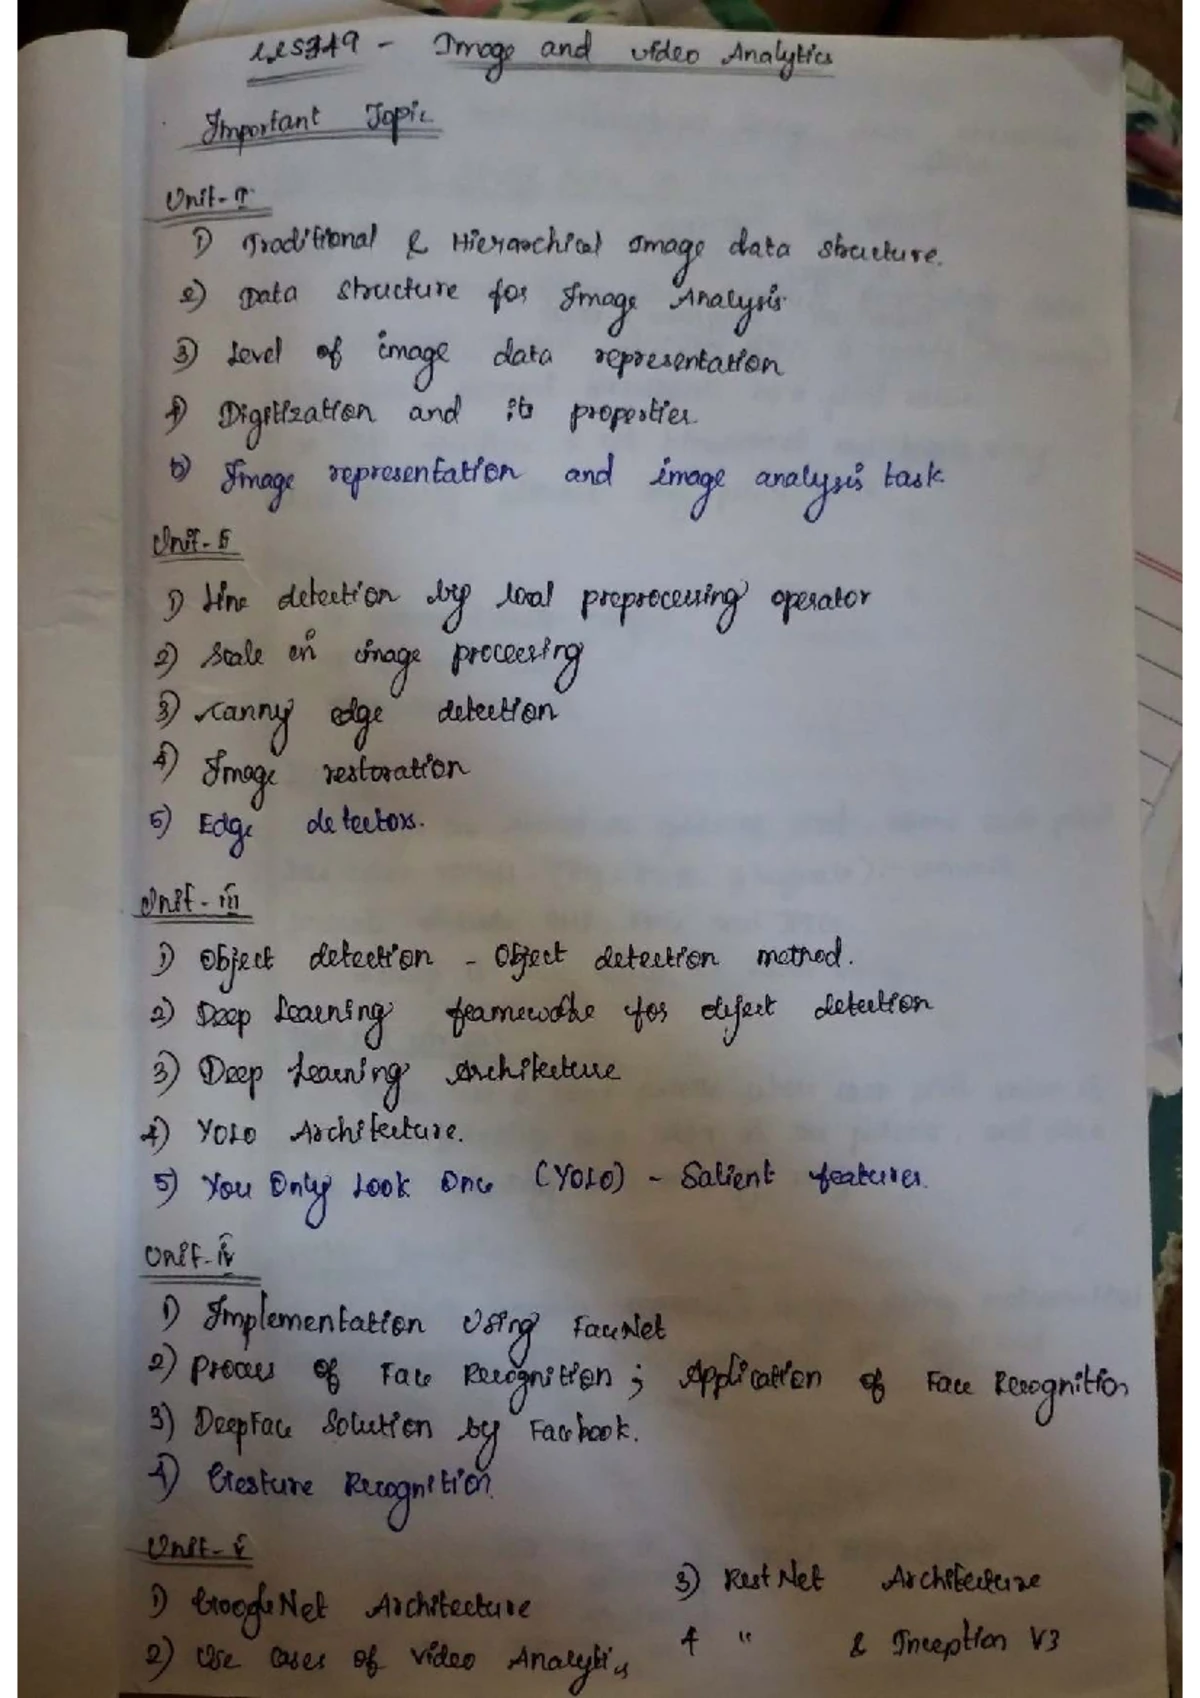 CCS349 - Image and video Analytics
Important Topic
Unit-I
1) Traditional & Hierarchical image data structure.
2) Data structure for Image Analysis
3) Level of image data representation
4) Digitization and its properties
5) Image representation and image analysis task
Unit-
1) Line detection by local preprocessing operator
2) Scale in image processing
3) Canny edge detection
4) Image restoration
5) Edge detectors.
Unit-iii
1) Object detection - Object detection method.
2) Deep Learning framework for object detection
3) Deep Learning Architecture
4) YOLO Architecture.
5) You Only Look Once (YOLO) - Salient features.
Unit-iv
1) Implementation Using FaceNet
2) Process of Face Recognition ; Application of Face Recognition
3) DeepFace Solution by Facebook.
4) Gesture Recognition
Unit-v
1) GoogleNet Architecture
2) Use cases of video Analytics
3) RestNet Architecture
4 " & Inception V3